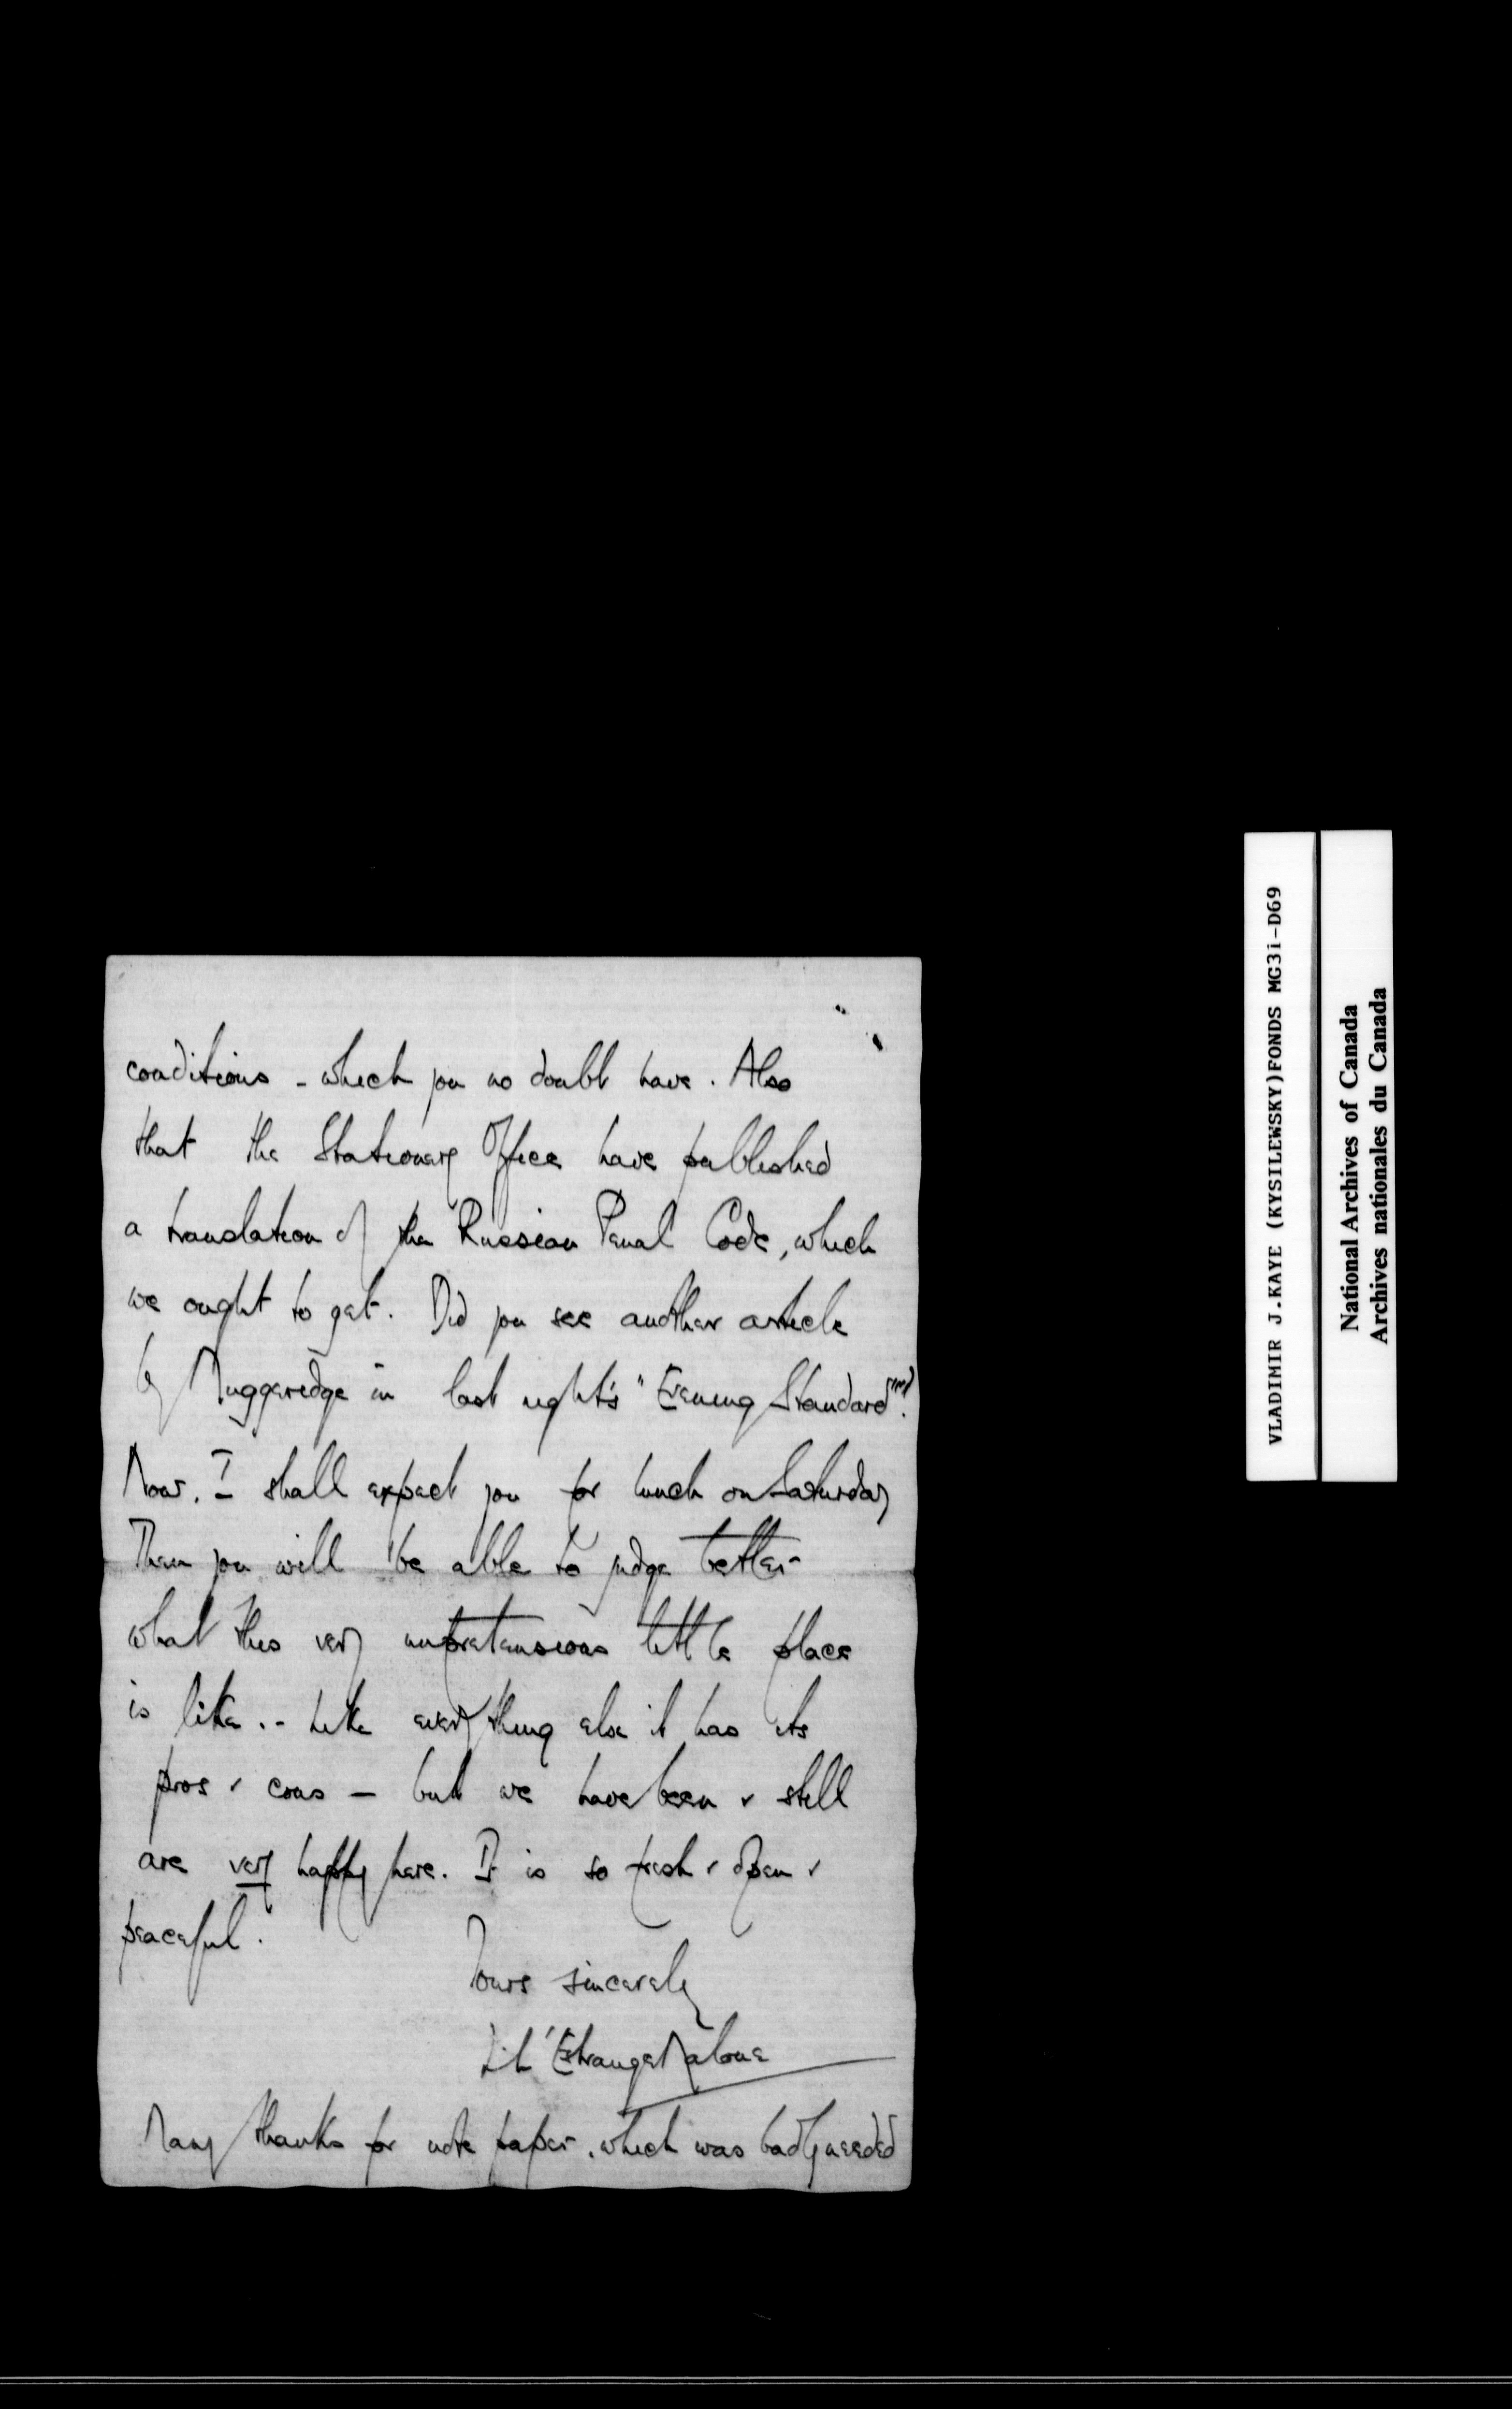 conditions - which you no doubt have. Also
that the Stationery Office have published
a translation of the Russian Penal Code, which
we ought to get. Did you see another article
by Muggeridge in last night's "Evening Standard"?
Now. I shall expect you for lunch on Saturday
Then you will be able to judge better
what this very unpretensious little place
is like. - Like everything else it has its
pros & cons - but we have been & still
are very happy here. It is so fresh & open &
peaceful.
Yours sincerely
L'Estrange Malone
Many thanks for note paper, which was badly needed
VLADIMIR J.KAYE (KYSILEWSKY)FONDS MG3i-D69
National Archives of Canada
Archives nationales du Canada